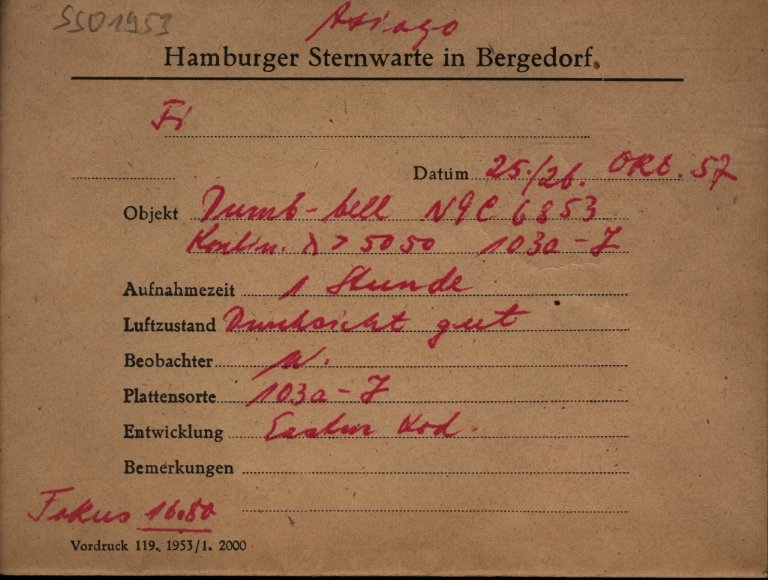 SSO1953
Asiago
Hamburger Sternwarte in Bergedorf.
Fi
Datum 25./26. Okt. 57
Objekt Dumb-bell NGC 6853
Kontin. λ > 5050 103a-J
Aufnahmezeit 1 Stunde
Luftzustand Durchsicht gut
Beobachter W.
Plattensorte 103a-J
Entwicklung Eastm Kod.
Bemerkungen
Fokus 16.80
Vordruck 119. 1953/1. 2000